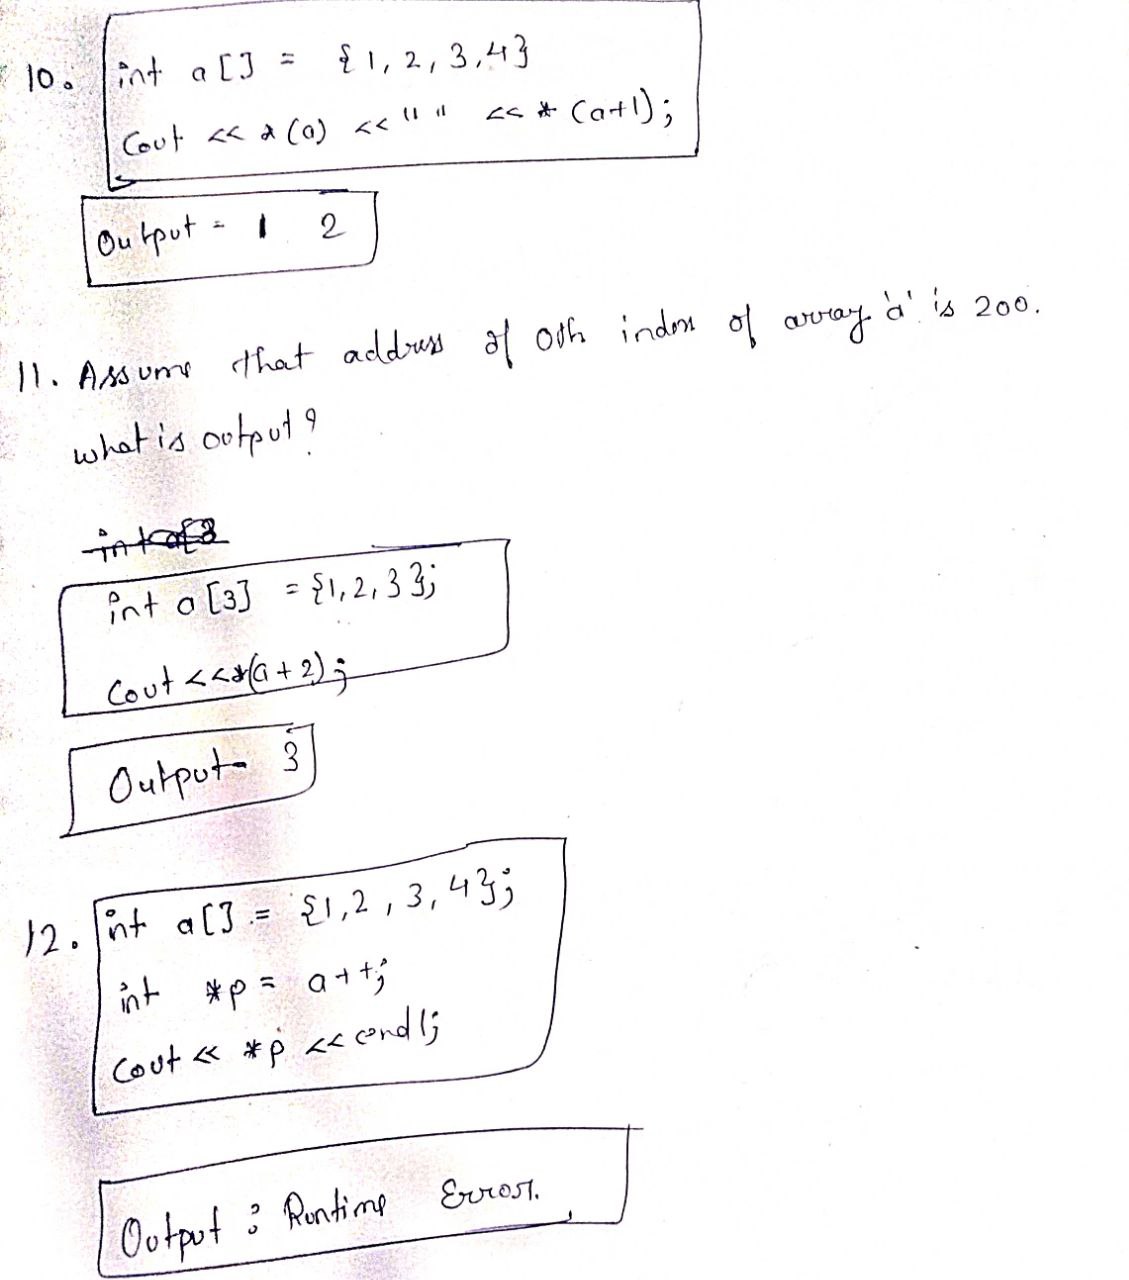 10. int a[] = {1, 2, 3, 4}
Cout << *(a) << " " << *(a+1);
Output = 1 2
11. Assume that address of 0th index of array 'a' is 200.
what is output?
int a[3
int a[3] = {1, 2, 3};
Cout <<*(a+2);
Output- 3
12. int a[] = {1, 2, 3, 4};
int *p = a++;
Cout << *p << endl;
Output : Runtime Error.